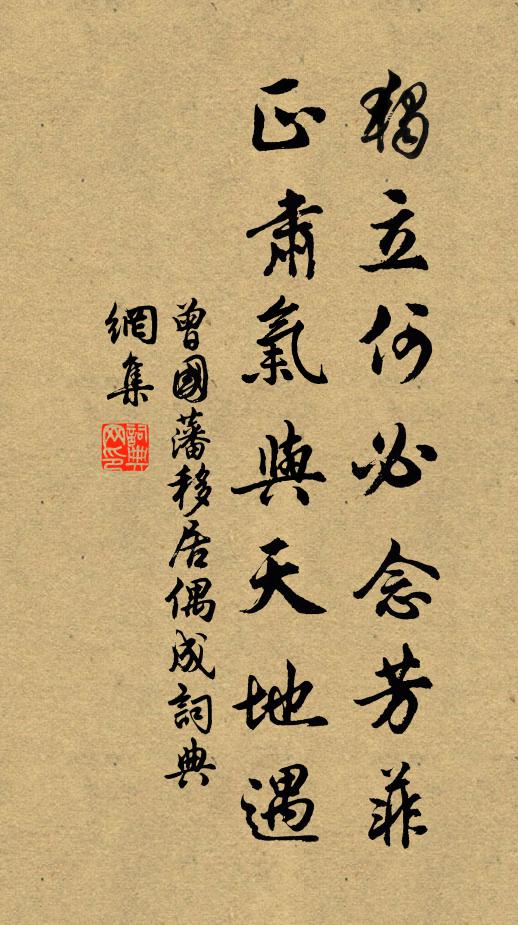 獨立何必念芳菲
正肅氣與天地遇
曾國藩移居偶成詞典
網集
詞典网印